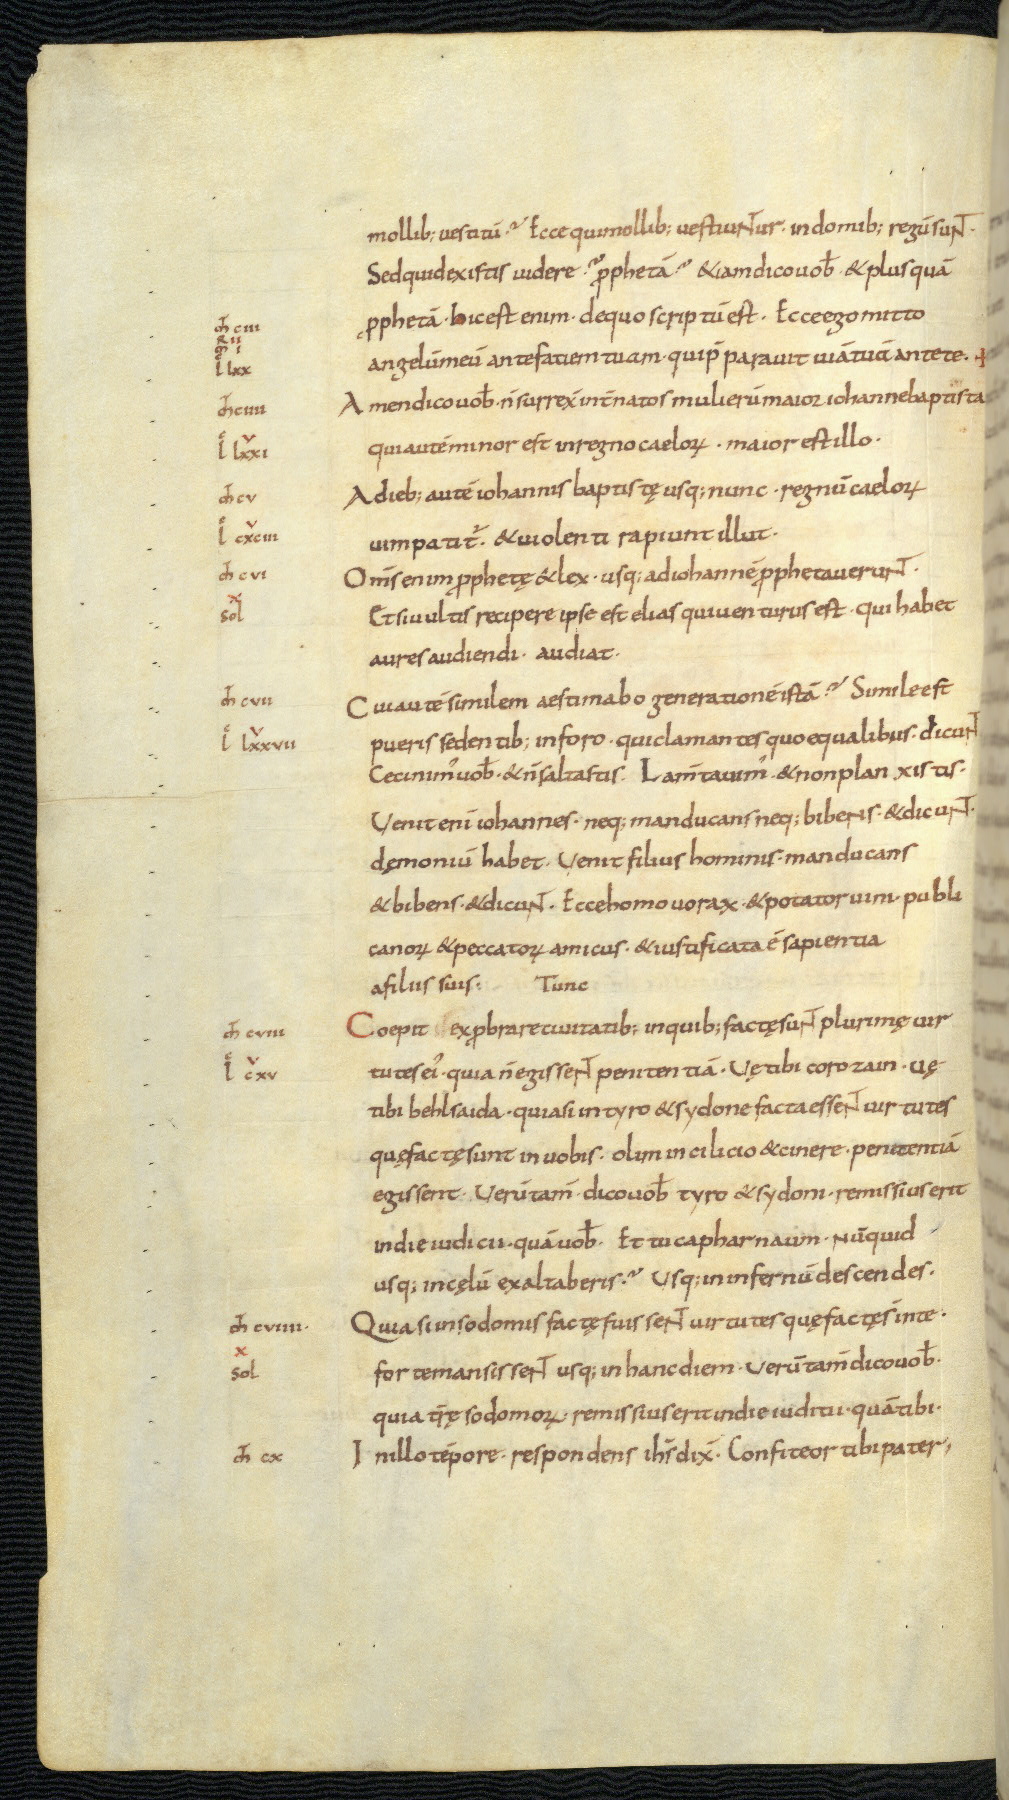 mollib; uestitū. Ecce qui mollib; uestiuntur. in domib; regū sunt.
Sed quid existis uidere. pphetā. & iam dico uob. & plus quā
m̄ ciii
pphetā. hic est enim. de quo scriptū est. Ecce ego mitto
R ii
m̄ i
l lxx
angelū meū ante fatiem tuam. qui p̄parauit uiā tuā ante te.
m̄ ciiii
Amen dico uob. n̄ surrex̄ int̄ natos mulierū maior iohanne baptista
l lxxi v
qui autē minor est in regno caelorꝝ. maior est illo.
m̄ cv
A dieb; autē iohannis baptistę usq; nunc. regnū caelorꝝ
l cxciii v
uim patit̄. & uiolenti rapiunt illut.
m̄ cvi
Om̄s enim pphetę & lex. usq; ad iohannē pphetauerunt.
x
sol
Et si uultis recipere ipse est elias qui uenturus est. qui habet
aures audiendi. audiat.
m̄ cvii
Cui autē similem aestimabo generationē istā. Simile est
l lxxvii v
pueris sedentib; in foro. qui clamantes quoequalibus. dicunt
Cecinim' uob. & n̄ saltastis. Lam̄tauim'. & non planxistis.
Uenit eni iohannes. neq; manducans neq; bibens. & dicunt.
dęmoniū habet. Uenit filius hominis. manducans
& bibens. & dicunt. Ecce homo uorax. & potator uini. publi
canorꝝ & peccatorꝝ amicus. & iustificata ē sapientia
a filiis suis. Tunc
m̄ cviii
Coepit exprobrare ciuitatib; in quib; factę sunt plurimę uir
l cxv v
tutes ei'. quia n̄ egissent penitentiā. Uę tibi corozain. uę
tibi behlsaida. quia si in tyro & sydone facta essent uirtutes
quę factę sunt in uobis. olim in cilicio & cinere. penitentiā
egissent. Uerūtam̄. dico uob tyro & sydoni. remissius erit
in die iudicii. quā uob. Et tu capharnaum. nūquid
usq; in cęlū exaltaberis. Usq; in infernū descendes.
m̄ cviiii.
Quia si in sodomis factę fuissent uirtutes quę factę s̄ in te.
x
sol
forte mansissent usq; in hanc diem. Uerūtam̄ dico uob.
quia t̄rę sodomorꝝ. remissius erit in die iuditii. quā tibi.
m̄ cx
In illo tēpore. respondens ih̄s dix̄. Confiteor tibi pater,